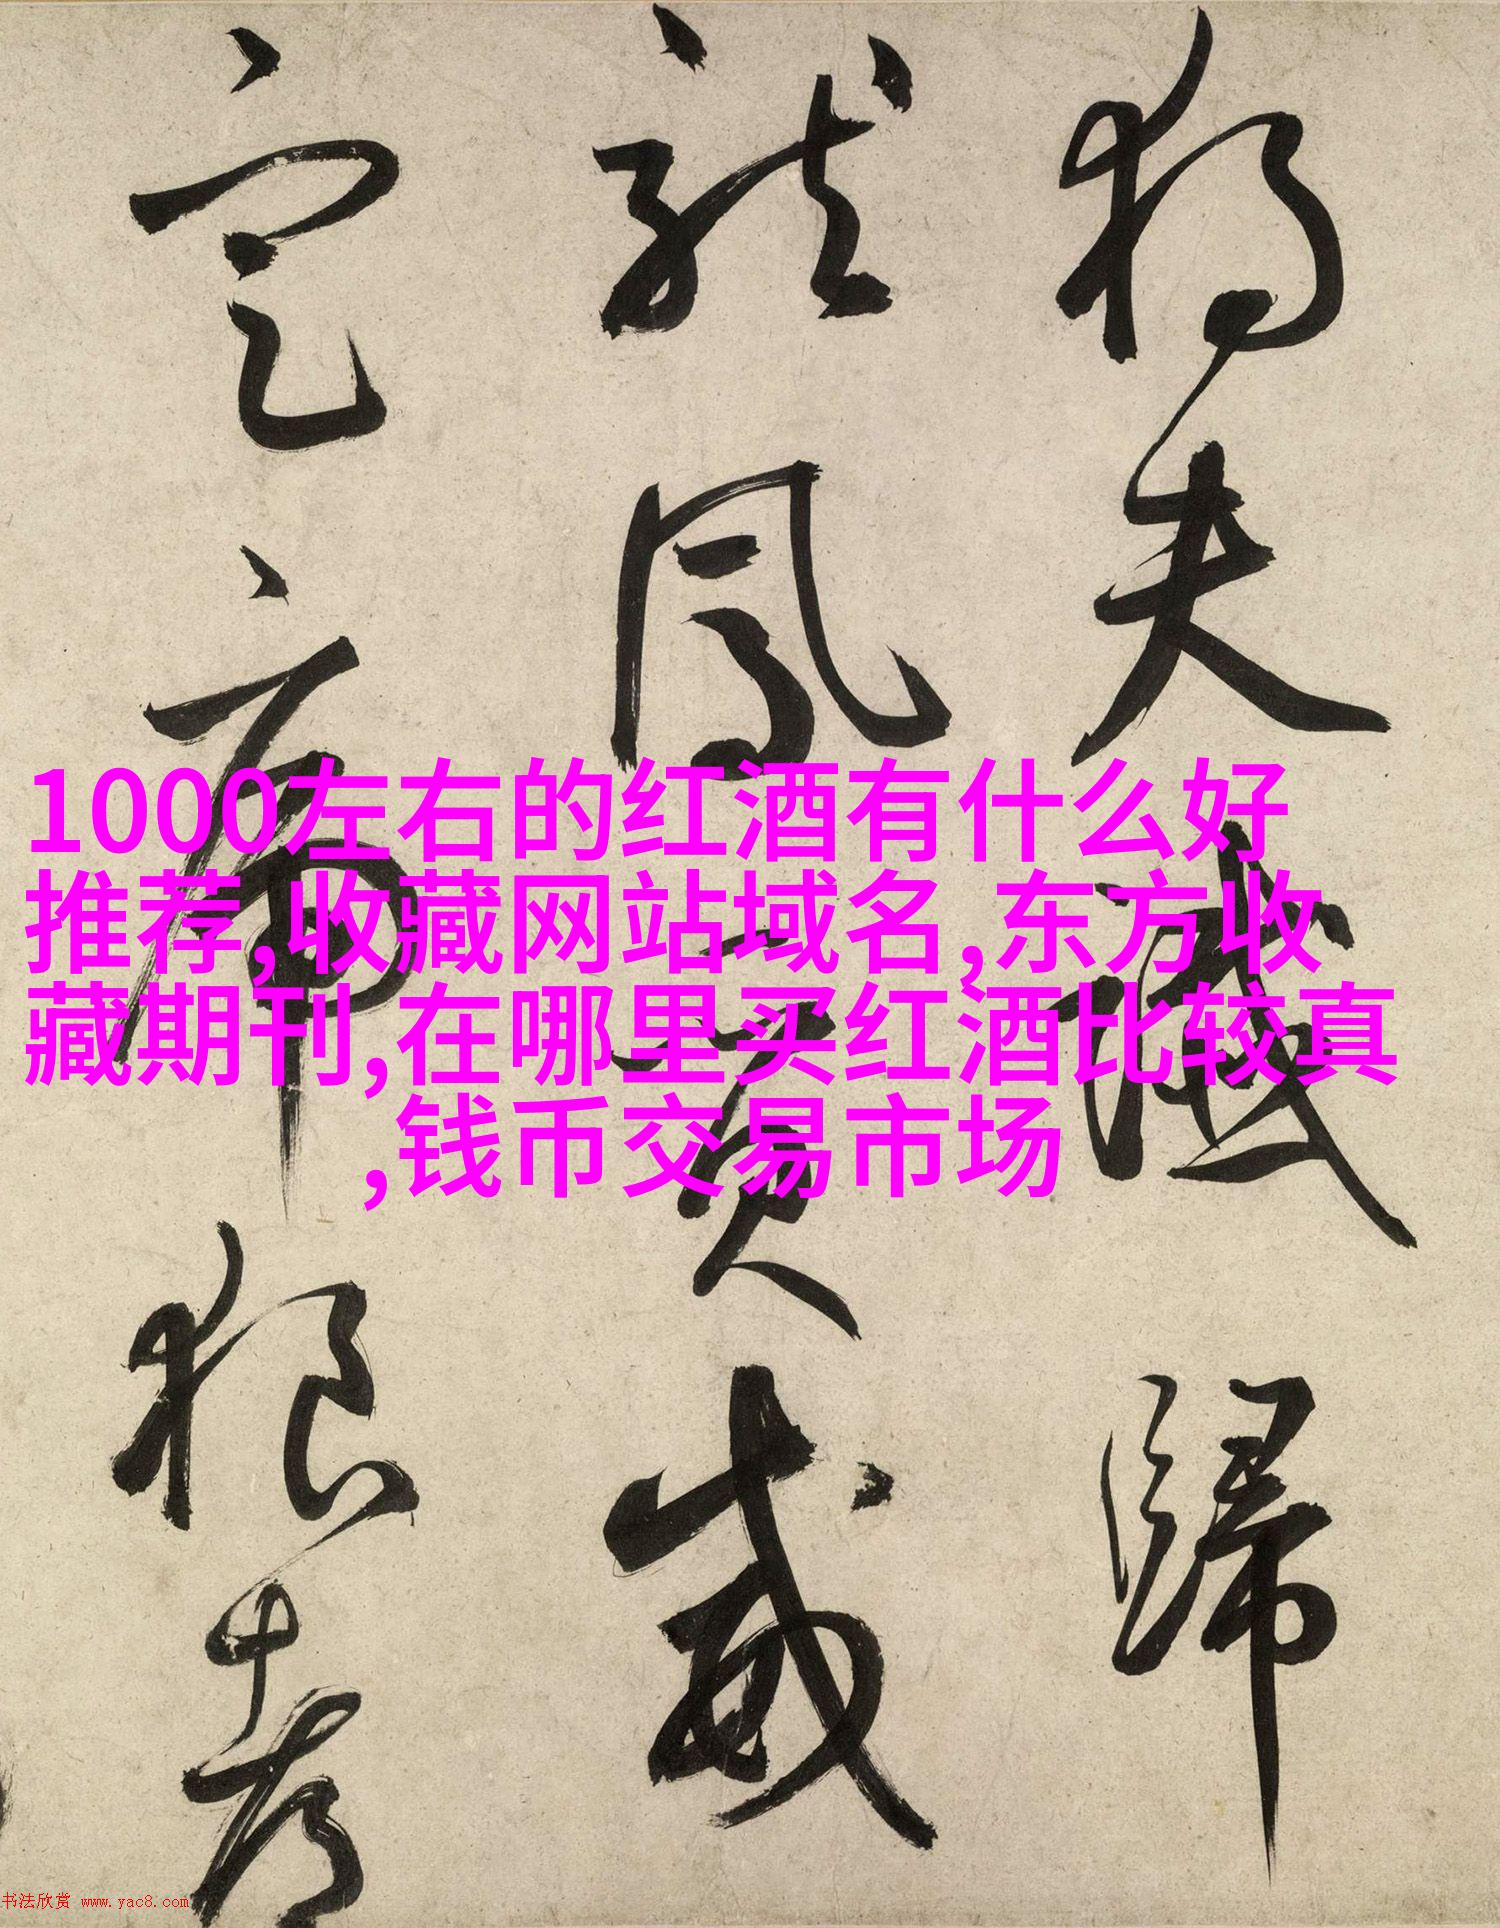 獨夫 歸
龍鳳 威
定 狼
1000左右的红酒有什么好
推荐,收藏网站域名,东方收
藏期刊,在哪里买红酒比较真
,钱币交易市场
书法欣赏 www.yac8.com